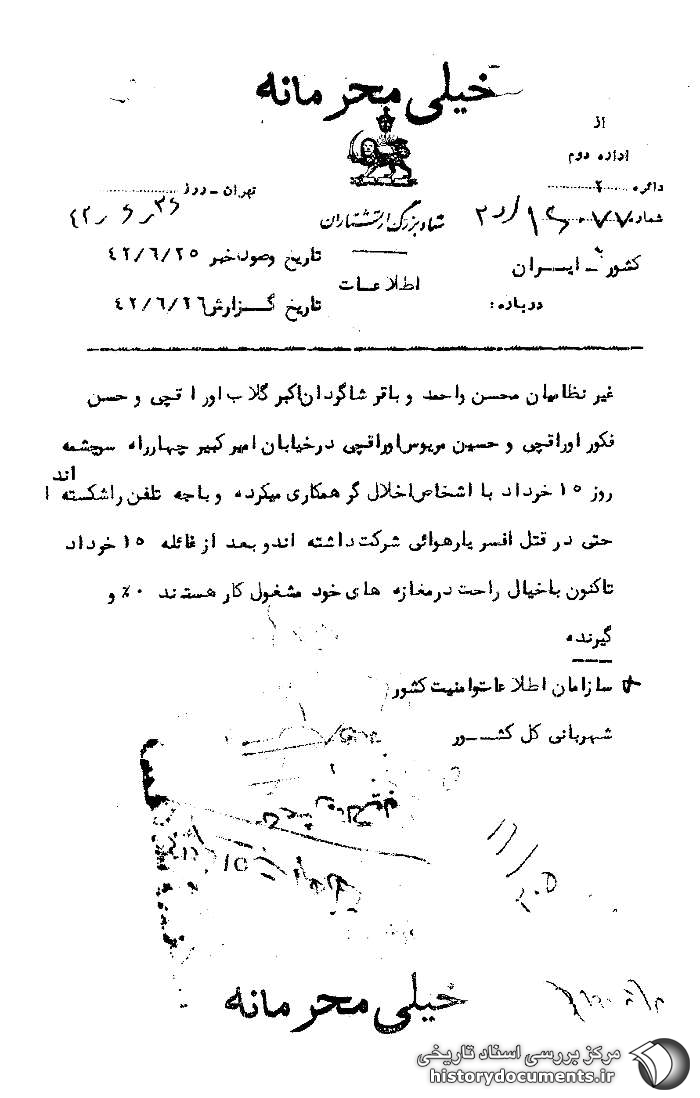 خیلی محرمانه
از
اداره دوم
دائره ......۲......
شماره ۲د/۱۶۰۷۷
کشور - ایران
درباره:
ستاد بزرگ ارتشتاران
اطلاعات
تهران - روز
تاریخ وصول خبر ۴۲/۶/۲۵
تاریخ گزارش ۴۲/۶/۲۶
غیر نظامیان محسن و احمد و باقر شاگردان اکبر گلاب اوراقچی و حسن
فکور اوراقچی و حسین مریوس اوراقچی در خیابان امیر کبیر چهارراه سرچشمه
روز ۱۵ خرداد با اشخاص اخلال گر همکاری میکرده و باجه تلفن را شکسته اند
حتی در قتل افسر یار هوائی شرکت داشته اند و بعد از غائله ۱۵ خرداد
تاکنون با خیال راحت در مغازه های خود مشغول کار هستند ۰٪ و
گیرنده
سازمان اطلاعات و امنیت کشور
شهربانی کل کشور
خیلی محرمانه
مرکز بررسی اسناد تاریخی
historydocuments.ir